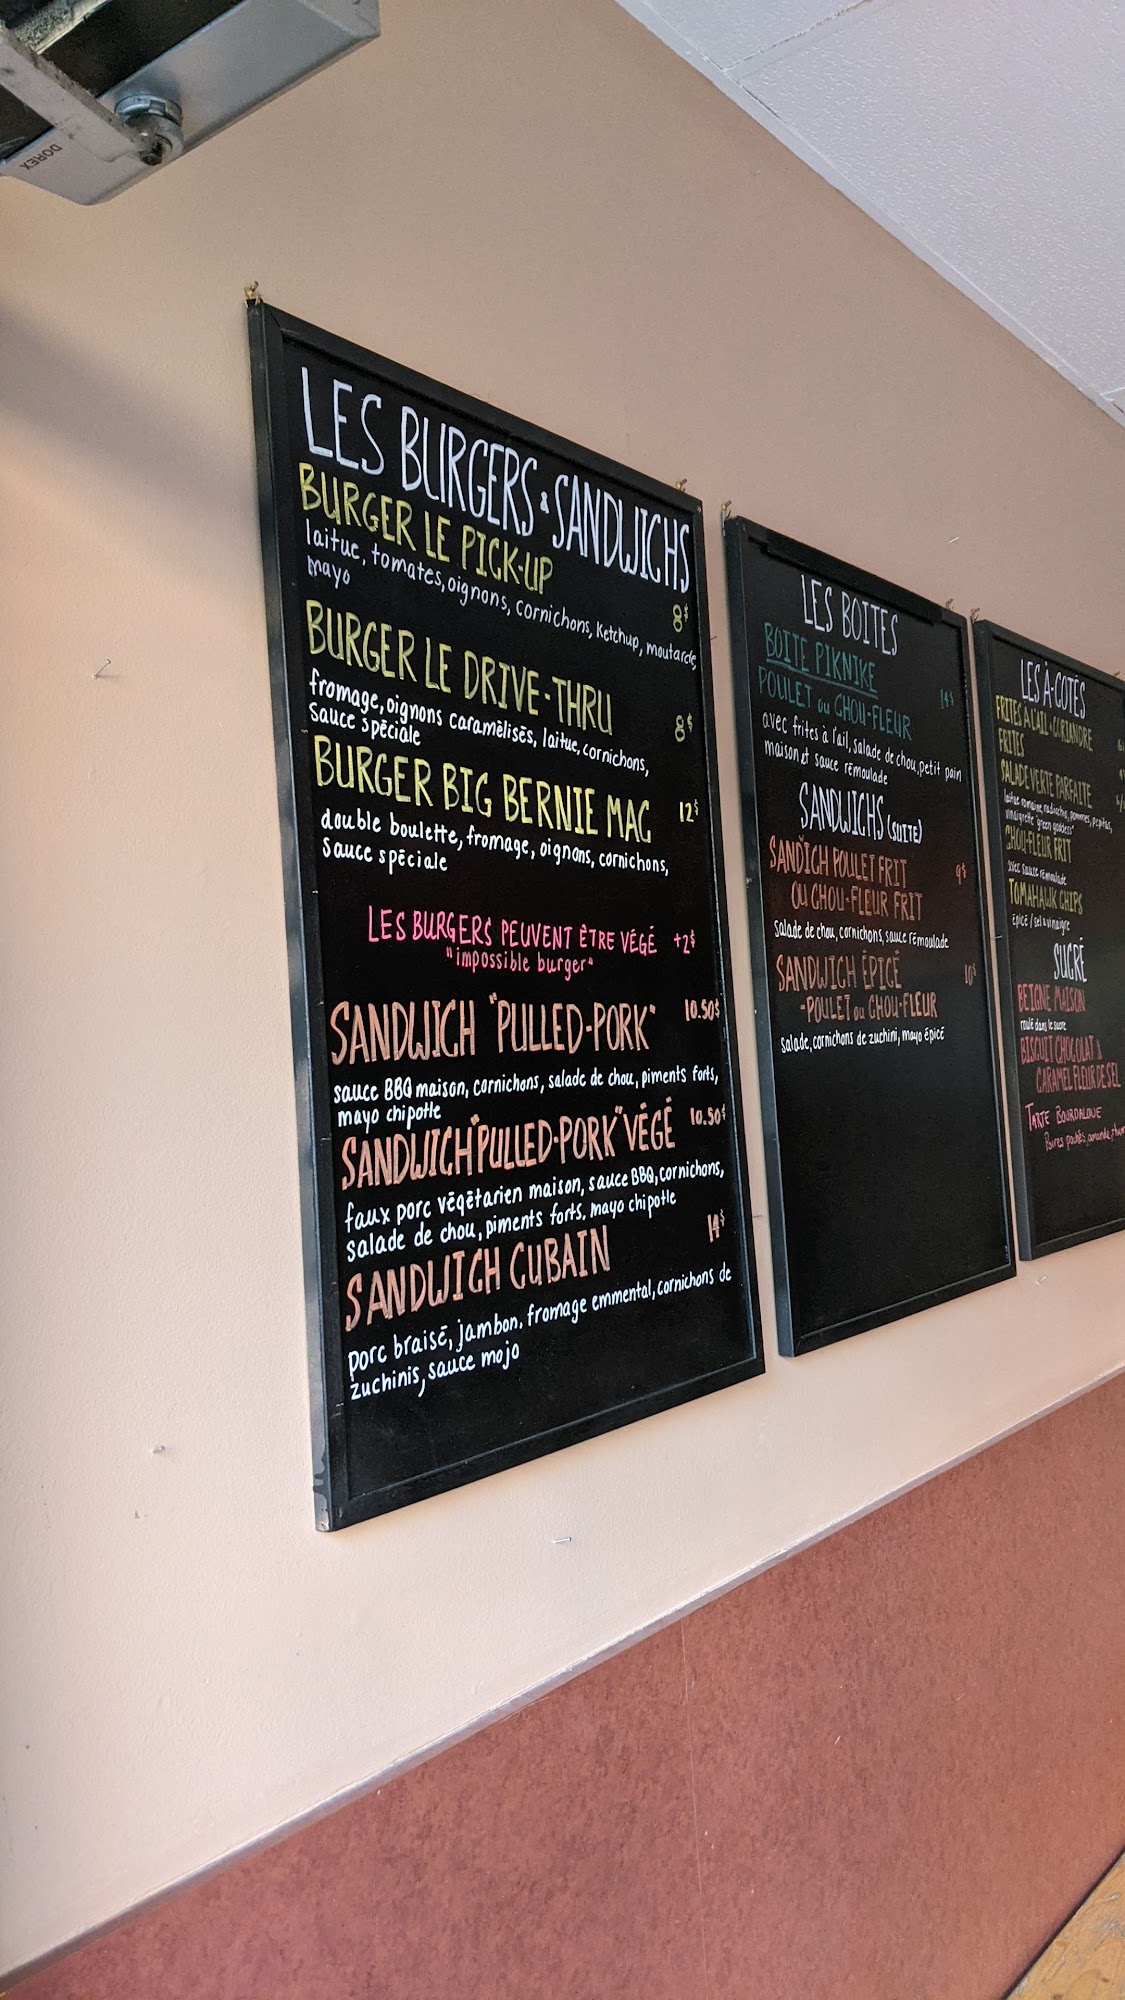 DOREX
LES BURGERS & SANDWICHS
BURGER LE PICK-UP
8$
laitue, tomates, oignons, cornichons, Ketchup, moutarde,
mayo
BURGER LE DRIVE-THRU
8$
fromage, oignons caramélisés, laitue, cornichons,
sauce spéciale
BURGER BIG BERNIE MAC 12$
double boulette, fromage, oignons, cornichons,
sauce spéciale
LES BURGERS PEUVENT ÊTRE VÉGÉ +2$
"impossible burger"
SANDWICH "PULLED-PORK" 10.50$
sauce BBQ maison, cornichons, salade de chou, piments forts,
mayo chipotle
SANDWICH "PULLED-PORK" VÉGÉ 10.50$
faux porc végétarien maison, sauce BBQ, cornichons,
salade de chou, piments forts, mayo chipotle
SANDWICH CUBAIN 14$
porc braisé, jambon, fromage emmental, cornichons de
zuchinis, sauce mojo
LES BOITES
BOITE PIKNIKE
POULET ou CHOU-FLEUR 14$
avec frites à l'ail, salade de chou, petit pain
maison et sauce rémoulade
SANDWICHS (SUITE)
SANDÌCH POULET FRIT 9$
OU CHOU-FLEUR FRIT
salade de chou, cornichons, sauce rémoulade
SANDWICH ÉPICÉ 10$
-POULET ou CHOU-FLEUR
salade, cornichons de zuchini, mayo épicé
LES À-COTÉS
FRITES A L'AIL & CORIANDRE
FRITES
SALADE VERTE PARFAITE
laitue romaine, radicchio, pommes, pepitas,
vinaigrette "green goddess"
CHOU-FLEUR FRIT
avec sauce rémoulade
TOMAHAWK CHIPS
épicé / sel & vinaigre
SUCRÉ
BEIGNE MAISON
roulé dans le sucre
BISCUIT CHOCOLAT &
CARAMEL FLEUR DE SEL
TARTE BOURDALOUE
Poires pochés, amande,